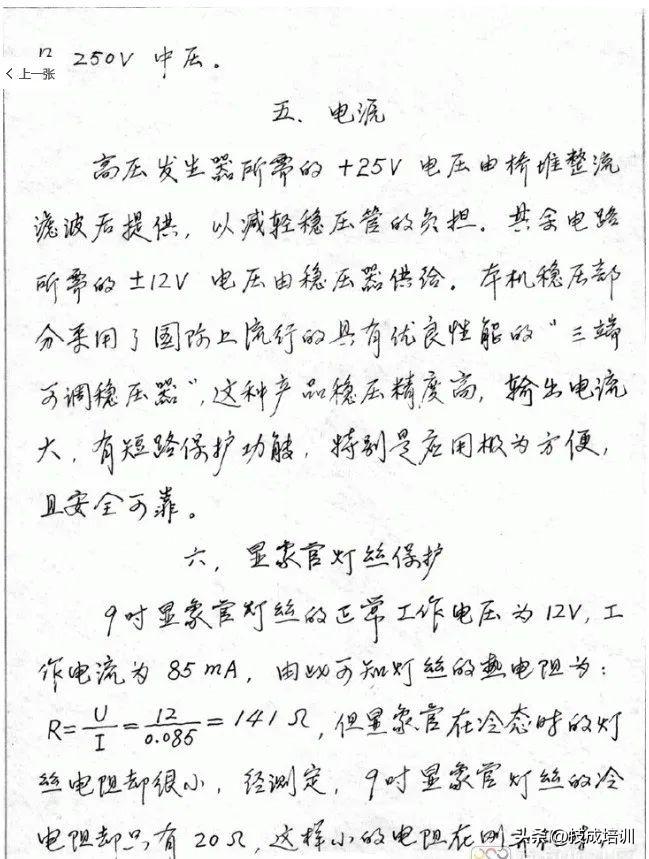 250V 中压。
上一张
五、电流
高压发生器所需的 +25V 电压由桥堆整流
滤波后提供，以减轻稳压管的负担。其余电路
所需的 ±12V 电压由稳压器供给。本机稳压部
分采用了国际上流行的具有优良性能的“三端
可调稳压器”，这种产品稳压精度高，输出电流
大，有短路保护功能，特别是应用极为方便，
且安全可靠。
六、显象官灯丝保护
9吋显象官灯丝的正常工作电压为 12V，工
作电流为 85 mA，由此可知灯丝的热电阻为：
R=U/I=12/0.085=141Ω，但显象官在冷态时的灯
丝电阻却很小，经测定，9吋显象官灯丝的冷
电阻却只有 20Ω，这样小的电阻在刚
头条@技成培训